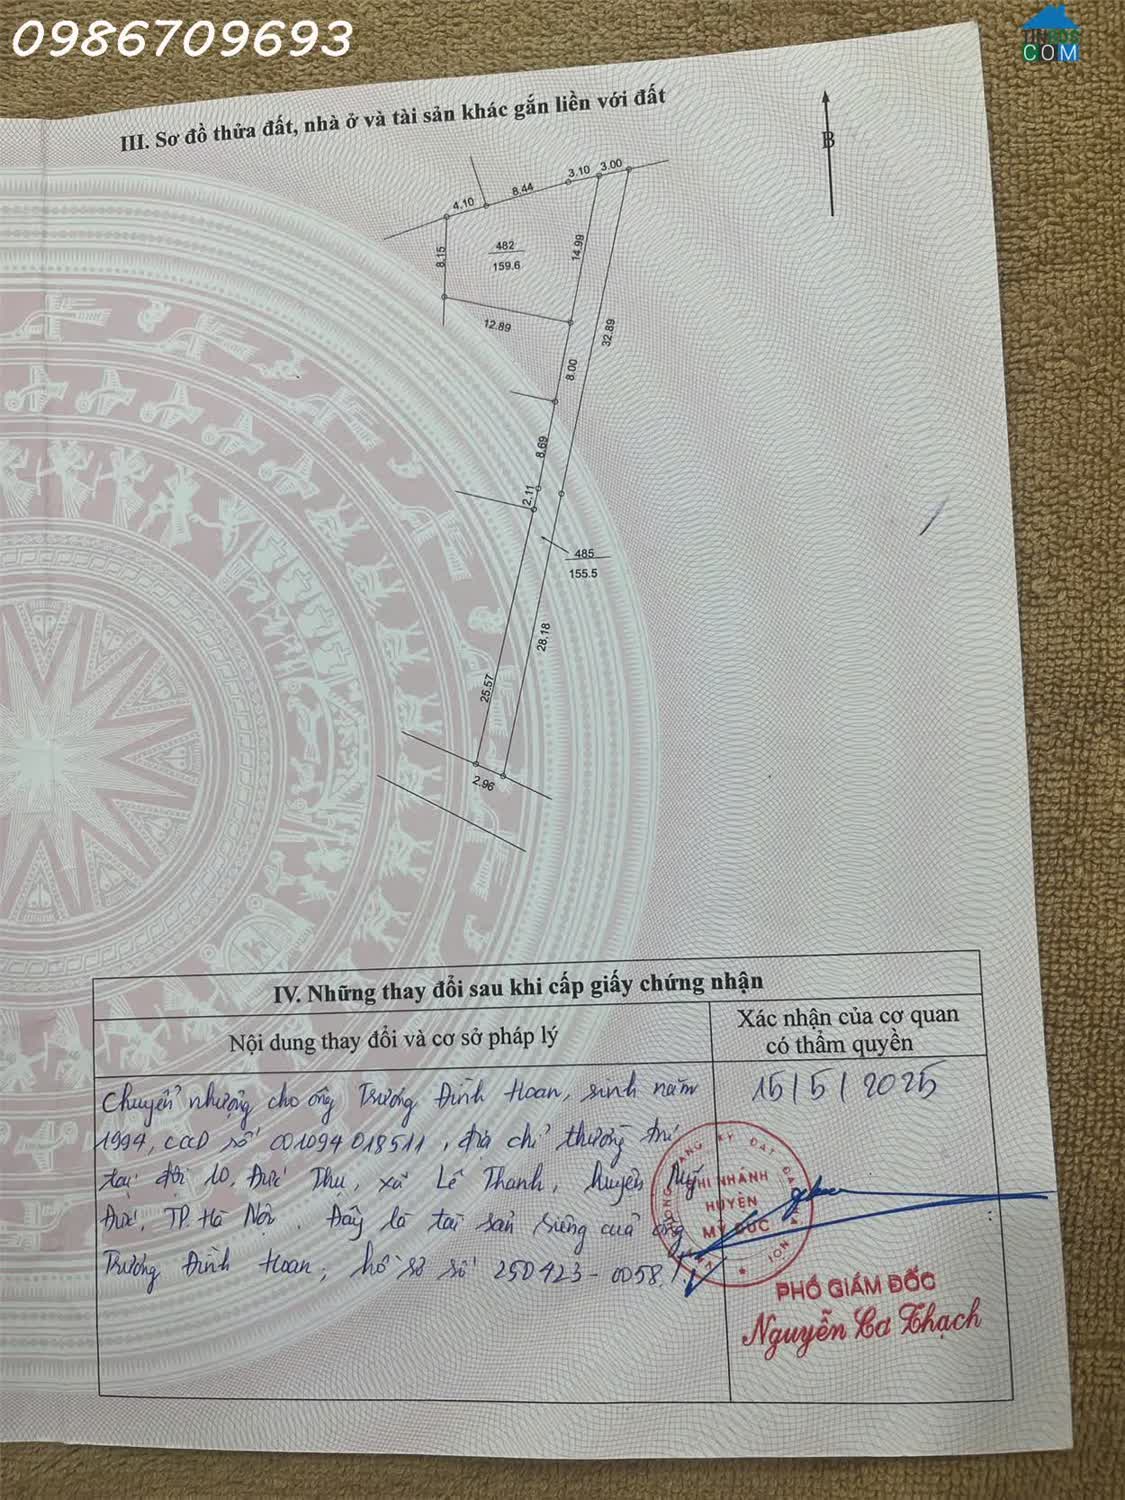 0986709693
COM
III. Sơ đồ thửa đất, nhà ở và tài sản khác gắn liền với đất
B
4.10
8.44
3.10
3.00
8.15
482
159.6
14.99
12.89
32.89
8.00
8.69
2.11
485
155.5
28.18
25.57
2.96
IV. Những thay đổi sau khi cấp giấy chứng nhận
Nội dung thay đổi và cơ sở pháp lý
Xác nhận của cơ quan
có thẩm quyền
Chuyển nhượng cho ông Trương Đình Hoan, sinh năm
1994, CCCD số 001094018511, địa chỉ thường trú
tại đội 10, Đức Thụ, xã Lê Thanh, huyện Mỹ
Đức, TP. Hà Nội. Đây là tài sản riêng của ông
Trương Đình Hoan; hồ sơ số 250423-0058
15/5/2025
CHI NHÁNH
HUYỆN
MỸ ĐỨC
PHÓ GIÁM ĐỐC
Nguyễn Cơ Thạch